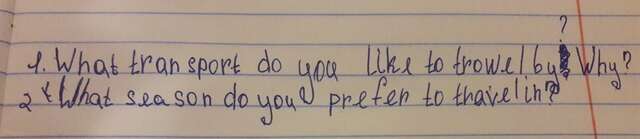 1. What transport do you like to trowel by? Why?
2 What season do you prefer to thavel in?